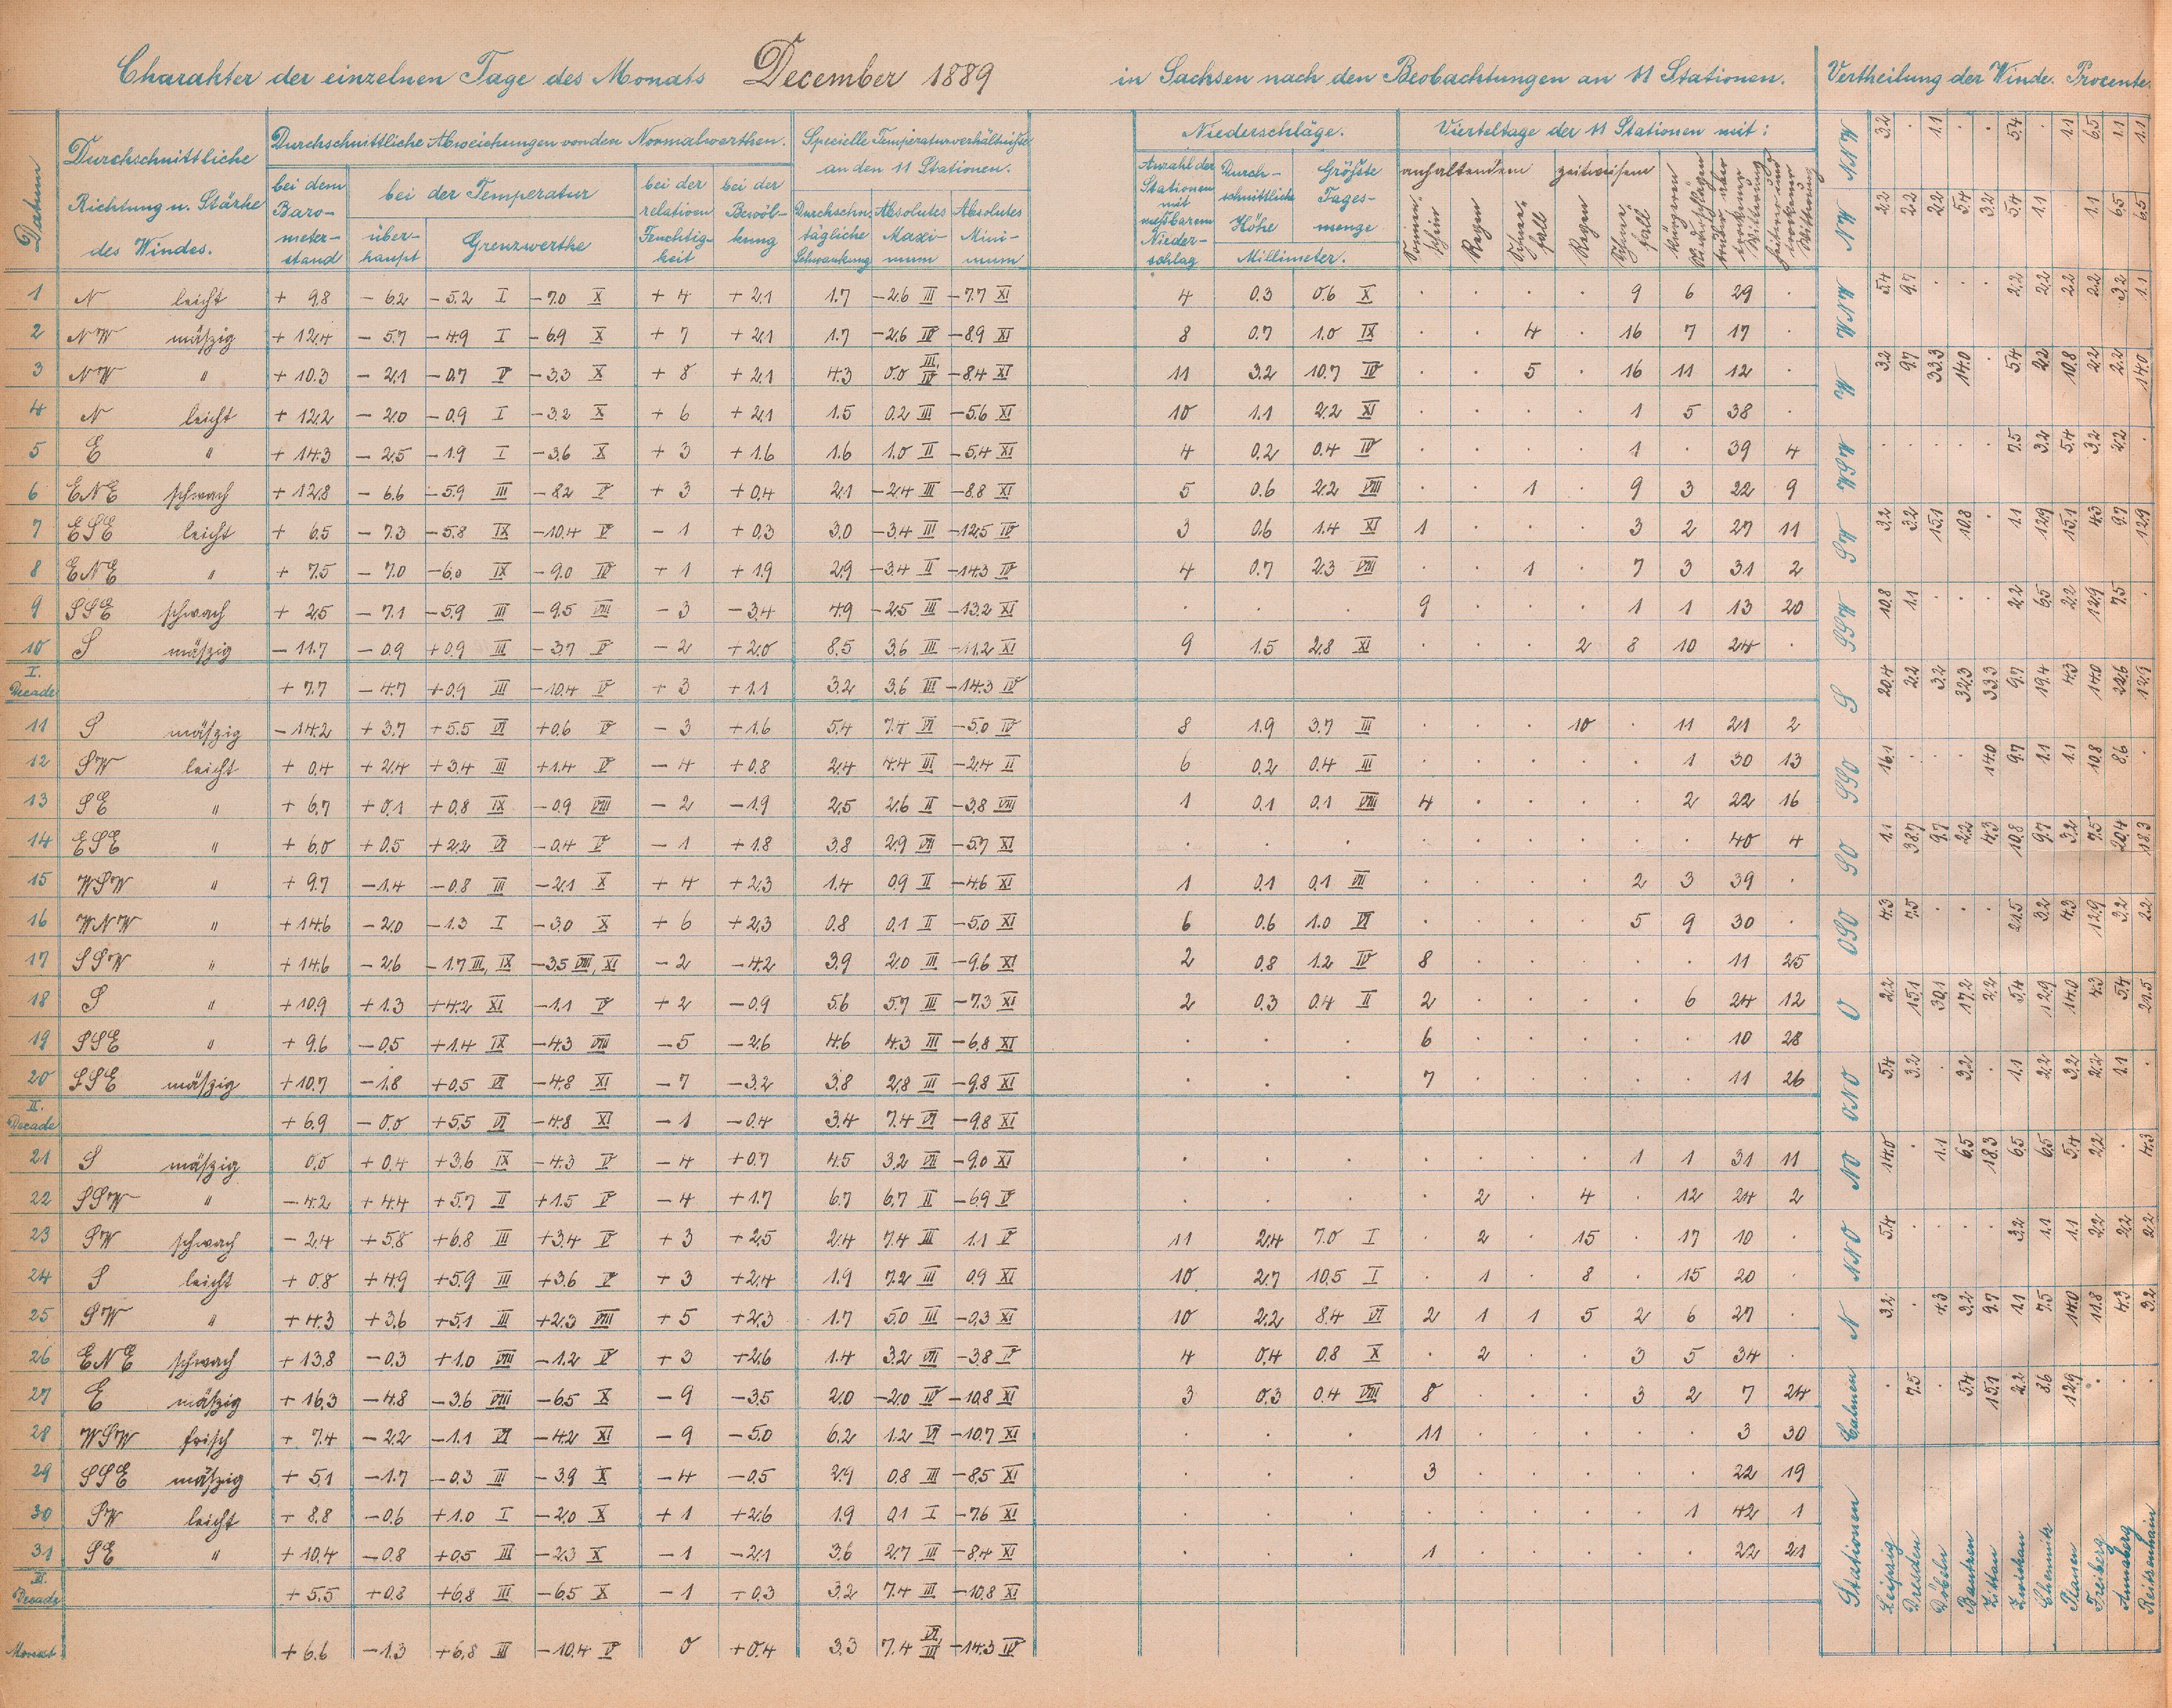 Charakter der einzelnen Tage des Monats December 1889 in Sachsen nach den Beobachtungen an 11 Stationen. Vertheilung der Winde. Procente.
Datum
Durchschnittliche Richtung u. Stärke des Windes.
Durchschnittliche Abweichungen von den Normalwerthen.
bei dem Barometerstand
bei der Temperatur
überhaupt
Grenzwerthe
bei der relativen Feuchtigkeit
bei der Bewölkung
Specielle Temperaturverhältnisse an den 11 Stationen.
Durchschn. tägliche Schwankung
Absolutes Maximum
Absolutes Minimum
Niederschläge.
Anzahl der Stationen mit meßbarem Niederschlag
Durchschnittliche Höhe
Größte Tagesmenge
Millimeter.
Vierteltage der 11 Stationen mit:
anhaltendem
Sonnenschein
Regen
Schneefall
zeitweisem
Regen
Schneefall
1 N leicht + 9.8 - 6.2 - 5.2 I - 7.0 X + 4 + 2.1 1.7 - 2.6 III - 7.7 XI 4 0.3 0.6 X . . . . 9 6 29 .
2 NW mäßig + 12.4 - 5.7 - 4.9 I - 6.9 X + 7 + 2.1 1.7 - 2.6 IV - 8.9 XI 8 0.7 1.0 IX . . 4 . 16 7 17 .
3 NW " + 10.3 - 2.1 - 0.7 V - 3.3 X + 8 + 2.1 4.3 0.0 III IV - 8.4 XI 11 3.2 10.7 IV . . 5 . 16 11 12 .
4 N leicht + 12.2 - 2.0 - 0.9 I - 3.2 X + 6 + 2.1 1.5 0.2 III - 5.6 XI 10 1.1 2.2 XI . . . . 1 5 38 .
5 E " + 14.3 - 2.5 - 1.9 I - 3.6 X + 3 + 1.6 1.6 1.0 II - 5.4 XI 4 0.2 0.4 IV . . . . 1 . 39 4
6 ENE schwach + 12.8 - 6.6 - 5.9 III - 8.2 V + 3 + 0.4 2.1 - 2.4 III - 8.8 XI 5 0.6 2.2 VIII . . 1 . 9 3 22 9
7 ESE leicht + 6.5 - 7.3 - 5.8 IX - 10.4 V - 1 + 0.3 3.0 - 3.4 III - 12.5 IV 3 0.6 1.4 XI 1 . . . 3 2 27 11
8 ENE " + 7.5 - 7.0 - 6.0 IX - 9.0 IV + 1 + 1.9 2.9 - 3.4 II - 14.3 IV 4 0.7 2.3 VIII . . 1 . 7 3 31 2
9 SSE schwach + 2.5 - 7.1 - 5.9 III - 9.5 VIII - 3 - 3.4 4.9 - 2.5 III - 13.2 XI . . . 9 . . . 1 1 13 20
10 S mäßig - 11.7 - 0.9 + 0.9 III - 3.7 V - 2 + 2.0 8.5 3.6 III - 11.2 XI 9 1.5 2.8 XI . . . 2 8 10 24 .
I. Decade + 7.7 - 4.7 + 0.9 III - 10.4 V + 3 + 1.1 3.2 3.6 III - 14.3 IV
11 S mäßig - 14.2 + 3.7 + 5.5 VI + 0.6 V - 3 + 1.6 5.4 7.4 VI - 5.0 IV 8 1.9 3.7 III . . . 10 . 11 21 2
12 SW leicht + 0.4 + 2.4 + 3.4 III + 1.4 V - 4 + 0.8 2.4 4.4 III - 2.4 II 6 0.2 0.4 III . . . . . 1 30 13
13 SE " + 6.7 + 0.1 + 0.8 IX - 0.9 VIII - 2 - 1.9 2.5 2.6 II - 3.8 VIII 1 0.1 0.1 VIII 4 . . . . 2 22 16
14 ESE " + 6.0 + 0.5 + 2.2 VI - 0.4 V - 1 + 1.8 3.8 2.9 VII - 5.7 XI . . . . . . . . . 40 4
15 WSW " + 9.7 - 1.4 - 0.8 III - 2.1 X + 4 + 2.3 1.4 0.9 II - 4.6 XI 1 0.1 0.1 VII . . . . 2 3 39 .
16 WNW " + 14.6 - 2.0 - 1.3 I - 3.0 X + 6 + 2.3 0.8 0.1 II - 5.0 XI 6 0.6 1.0 VI . . . . 5 9 30 .
17 SSW " + 14.6 - 2.6 - 1.7 III, IX - 3.5 VIII, XI - 2 - 4.2 3.9 2.0 III - 9.6 XI 2 0.8 1.2 IV 8 . . . . . 11 25
18 S " + 10.9 + 1.3 + 4.2 XI - 1.1 V + 2 - 0.9 5.6 5.7 III - 7.3 XI 2 0.3 0.4 II 2 . . . . 6 24 12
19 SSE " + 9.6 - 0.5 + 1.4 IX - 4.3 VIII - 5 - 2.6 4.6 4.3 III - 6.8 XI . . . 6 . . . . . 10 28
20 SSE mäßig + 10.7 - 1.8 + 0.5 VI - 4.8 XI - 7 - 3.2 3.8 2.8 III - 9.8 XI . . . 7 . . . . . 11 26
II. Decade + 6.9 - 0.0 + 5.5 VI - 4.8 XI - 1 - 0.4 3.4 7.4 VI - 9.8 XI
21 S mäßig 0.0 + 0.4 + 3.6 IX - 4.3 V - 4 + 0.7 4.5 3.2 VII - 9.0 XI . . . . . . . 1 1 31 11
22 SSW " - 4.2 + 4.4 + 5.7 II + 1.5 V - 4 + 1.7 6.7 6.7 II - 6.9 V . . . . 2 . 4 . 12 24 2
23 SW schwach - 2.4 + 5.8 + 6.8 III + 3.4 V + 3 + 2.5 2.4 7.4 III 1.1 V 11 2.4 7.0 I . 2 . 15 . 17 10 .
24 S leicht + 0.8 + 4.9 + 5.9 III + 3.6 V + 3 + 2.4 1.9 7.2 III 0.9 XI 10 2.7 10.5 I . 1 . 8 . 15 20 .
25 SW " + 4.3 + 3.6 + 5.1 III + 2.3 VIII + 5 + 2.3 1.7 5.0 III - 0.3 XI 10 2.2 8.4 VI 2 1 1 5 2 6 27 .
26 ENE schwach + 13.8 - 0.3 + 1.0 VIII - 1.2 V + 3 + 2.6 1.4 3.2 VII - 3.8 V 4 0.4 0.8 X . 2 . . 3 5 34 .
27 E mäßig + 16.3 - 4.8 - 3.6 VIII - 6.5 X - 9 - 3.5 2.0 - 2.0 IV - 10.8 XI 3 0.3 0.4 VIII 8 . . . 3 2 7 24
28 WSW frisch + 7.4 - 2.2 - 1.1 VI - 4.2 XI - 9 - 5.0 6.2 1.2 VI - 10.7 XI . . . 11 . . . . . 3 30
29 SSE mäßig + 5.1 - 1.7 - 0.3 III - 3.9 X - 4 - 0.5 2.9 0.8 III - 8.5 XI . . . 3 . . . . . 22 19
30 SW leicht + 8.8 - 0.6 + 1.0 I - 2.0 X + 1 + 2.6 1.9 0.1 I - 7.6 XI . . . . . . . . 1 42 1
31 SE " + 10.4 - 0.8 + 0.5 III - 2.3 X - 1 - 2.1 3.6 2.7 III - 8.4 XI . . . 1 . . . . . 22 21
III. Decade + 5.5 + 0.8 + 6.8 III - 6.5 X - 1 + 0.3 3.2 7.4 III - 10.8 XI
Monat + 6.6 - 1.3 + 6.8 III - 10.4 V 0 + 0.4 3.3 7.4 VI III - 14.3 IV
NNW 3.2 . 1.1 . . 5.4 . 1.1 6.5 1.1 1.1
NW 2.2 2.2 2.2 5.4 3.2 5.4 1.1 . 1.1 6.5 6.5
WNW 5.4 9.7 . . . 2.2 2.2 2.2 2.2 3.2 1.1
W 3.2 9.7 33.3 14.0 . 5.4 2.2 10.8 2.2 2.2 14.0
WSW . . . . . 7.5 3.2 5.4 3.2 2.2 .
SW 3.2 3.2 15.1 10.8 . 1.1 12.9 15.1 4.3 9.7 12.9
SSW 10.8 1.1 . . . 2.2 6.5 2.2 12.9 7.5 .
S 20.4 2.2 3.2 32.3 33.3 9.7 19.4 4.3 14.0 22.6 12.9
SSO 16.1 . . . 14.0 9.7 1.1 1.1 10.8 8.6 .
SO 1.1 38.7 9.7 2.2 4.3 10.8 9.7 3.2 7.5 20.4 18.3
OSO 4.3 7.5 . . . 21.5 3.2 4.3 12.9 3.2 2.2
O 2.2 15.1 30.1 17.2 2.2 5.4 12.9 14.0 4.3 5.4 21.5
ONO 5.4 3.2 . 3.2 . 1.1 2.2 3.2 2.2 1.1 .
NO 14.0 . 1.1 6.5 18.3 6.5 6.5 5.4 2.2 . 4.3
NNO 5.4 . . . . 3.2 1.1 1.1 2.2 2.2 2.2
N 3.2 . 4.3 3.2 9.7 1.1 7.5 14.0 11.8 4.3 3.2
Calmen . 7.5 . 5.4 15.1 2.2 8.6 12.9 . . .
Stationen Leipzig Dresden Döbeln Bautzen Zittau Zwickau Chemnitz Plauen Freiberg Annaberg Reitzenhain